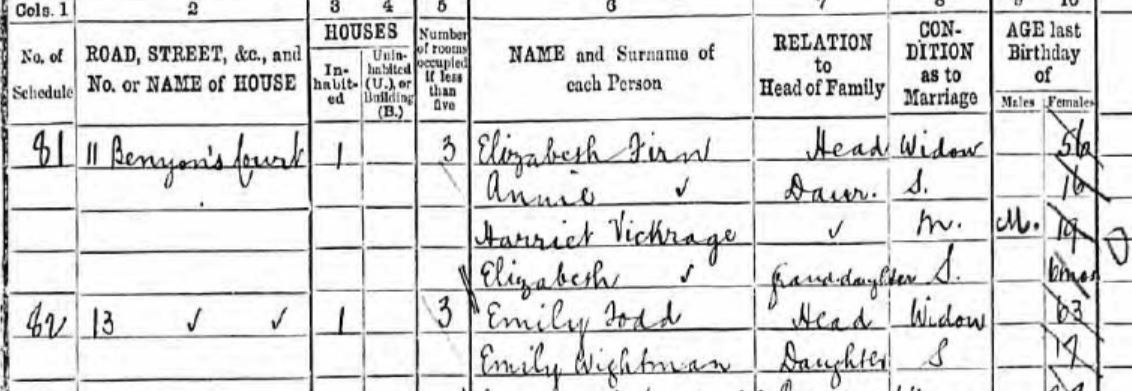 Cols. 1 2 3 4 5 6 7 8 9 10
No. of Schedule ROAD, STREET, &c., and No. or NAME of HOUSE HOUSES In-habit-ed Unin-habited (U.), or Building (B.) Number of rooms occupied if less than five NAME and Surname of each Person RELATION to Head of Family CON-DITION as to Marriage AGE last Birthday of Males Females
81 11 Benyon's Court 1 3 Elizabeth Firn Head Widow 56
Annie ✓ Daur. S. 16
Harriet Vickrage ✓ M. M. 19
Elizabeth ✓ Granddaughter S. 6mos
82 13 ✓ ✓ 1 3 Emily Todd Head Widow 63
Emily Wightman Daughter S 17